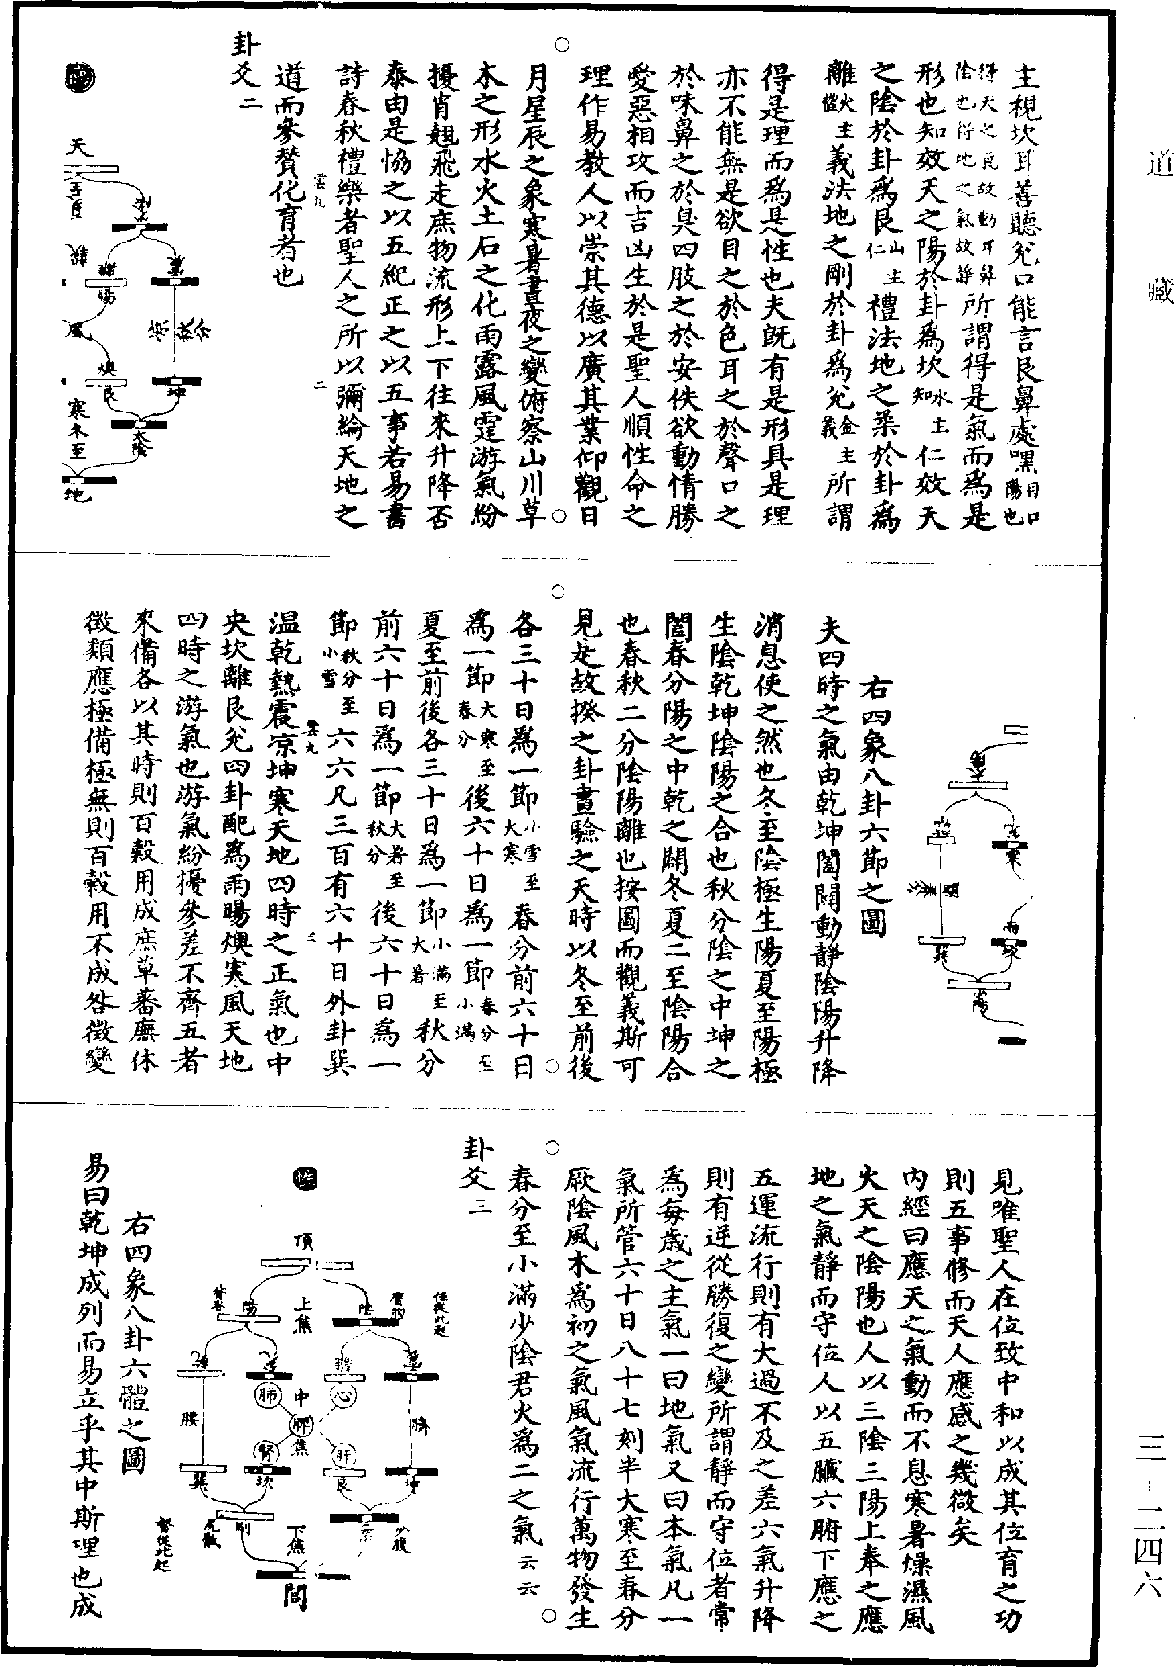 道藏
三—二四六
主視坎耳善聽兌口能言艮鼻處嘿目口陽也
得天之良故動耳鼻陰也得地之氣故靜所謂得是氣而爲是
形也知效天之陽於卦爲坎水主知仁效天
之陰於卦爲艮山主仁禮法地之柔於卦爲
離火主禮義法地之剛於卦爲兌金主義所謂
得是理而爲是性也夫旣有是形具是理
亦不能無是欲目之於色耳之於聲口之
於味鼻之於臭四肢之於安佚欲動情勝
愛惡相攻而吉凶生於是聖人順性命之
理作易教人以崇其德以廣其業仰觀日
月星辰之象寒暑晝夜之變俯察山川草
木之形水火土石之化雨露風霆游氣紛
擾肖翹飛走庶物流形上下往來升降否
泰由是恊之以五紀正之以五事若易書
詩春秋禮樂者聖人之所以彌綸天地之
道而參贊化育者也
雲九
二
卦爻二
天
風
燠
艮
坤
太陰
寒冬至
地
右四象八卦六節之圖
夫四時之氣由乾坤闔闢動靜陰陽升降
消息使之然也冬至陰極生陽夏至陽極
生陰乾坤陰陽之合也秋分陰之中坤之
闔春分陽之中乾之闢冬夏二至陰陽合
也春秋二分陰陽離也按圖而觀義斯可
見是故揆之卦畫驗之天時以冬至前後
各三十日爲一節小雪至大寒春分前六十日
爲一節大寒至春分後六十日爲一節春分至小滿
夏至前後各三十日爲一節小滿至大暑秋分
前六十日爲一節大暑至秋分後六十日爲一
節秋分至小雪六六凡三百有六十日外卦巽
溫乾熱震凉坤寒天地四時之正氣也中
央坎離艮兌四卦配爲雨暘燠寒風天地
四時之游氣也游氣紛擾參差不齊五者
來備各以其時則百穀用成庶草蕃廡休
徵類應極備極無則百穀用不成咎徵變
雲九
三
見唯聖人在位致中和以成其位育之功
則五事修而天人應感之幾微矣
內經曰應天之氣動而不息寒暑燥濕風
火天之陰陽也人以三陰三陽上奉之應
地之氣靜而守位人以五臟六腑下應之
五運流行則有大過不及之差六氣升降
則有逆從勝復之變所謂靜而守位者常
爲每歲之主氣一曰地氣又曰本氣凡一
氣所管六十日八十七刻半大寒至春分
厥陰風木爲初之氣風氣流行萬物發生
春分至小滿少陰君火爲二之氣云云
卦爻三
頂
上焦
陽
陰
肺
心
中
脾
焦
腎
肝
腰
臍
巽
坎
艮
坤
下焦
尾閭
督從此起
任從此起
右四象八卦六體之圖
易曰乾坤成列而易立乎其中斯理也成